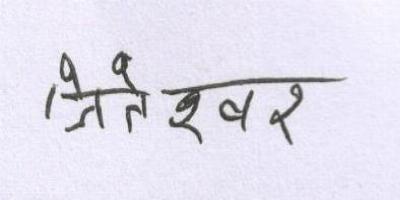 जितेश्वर